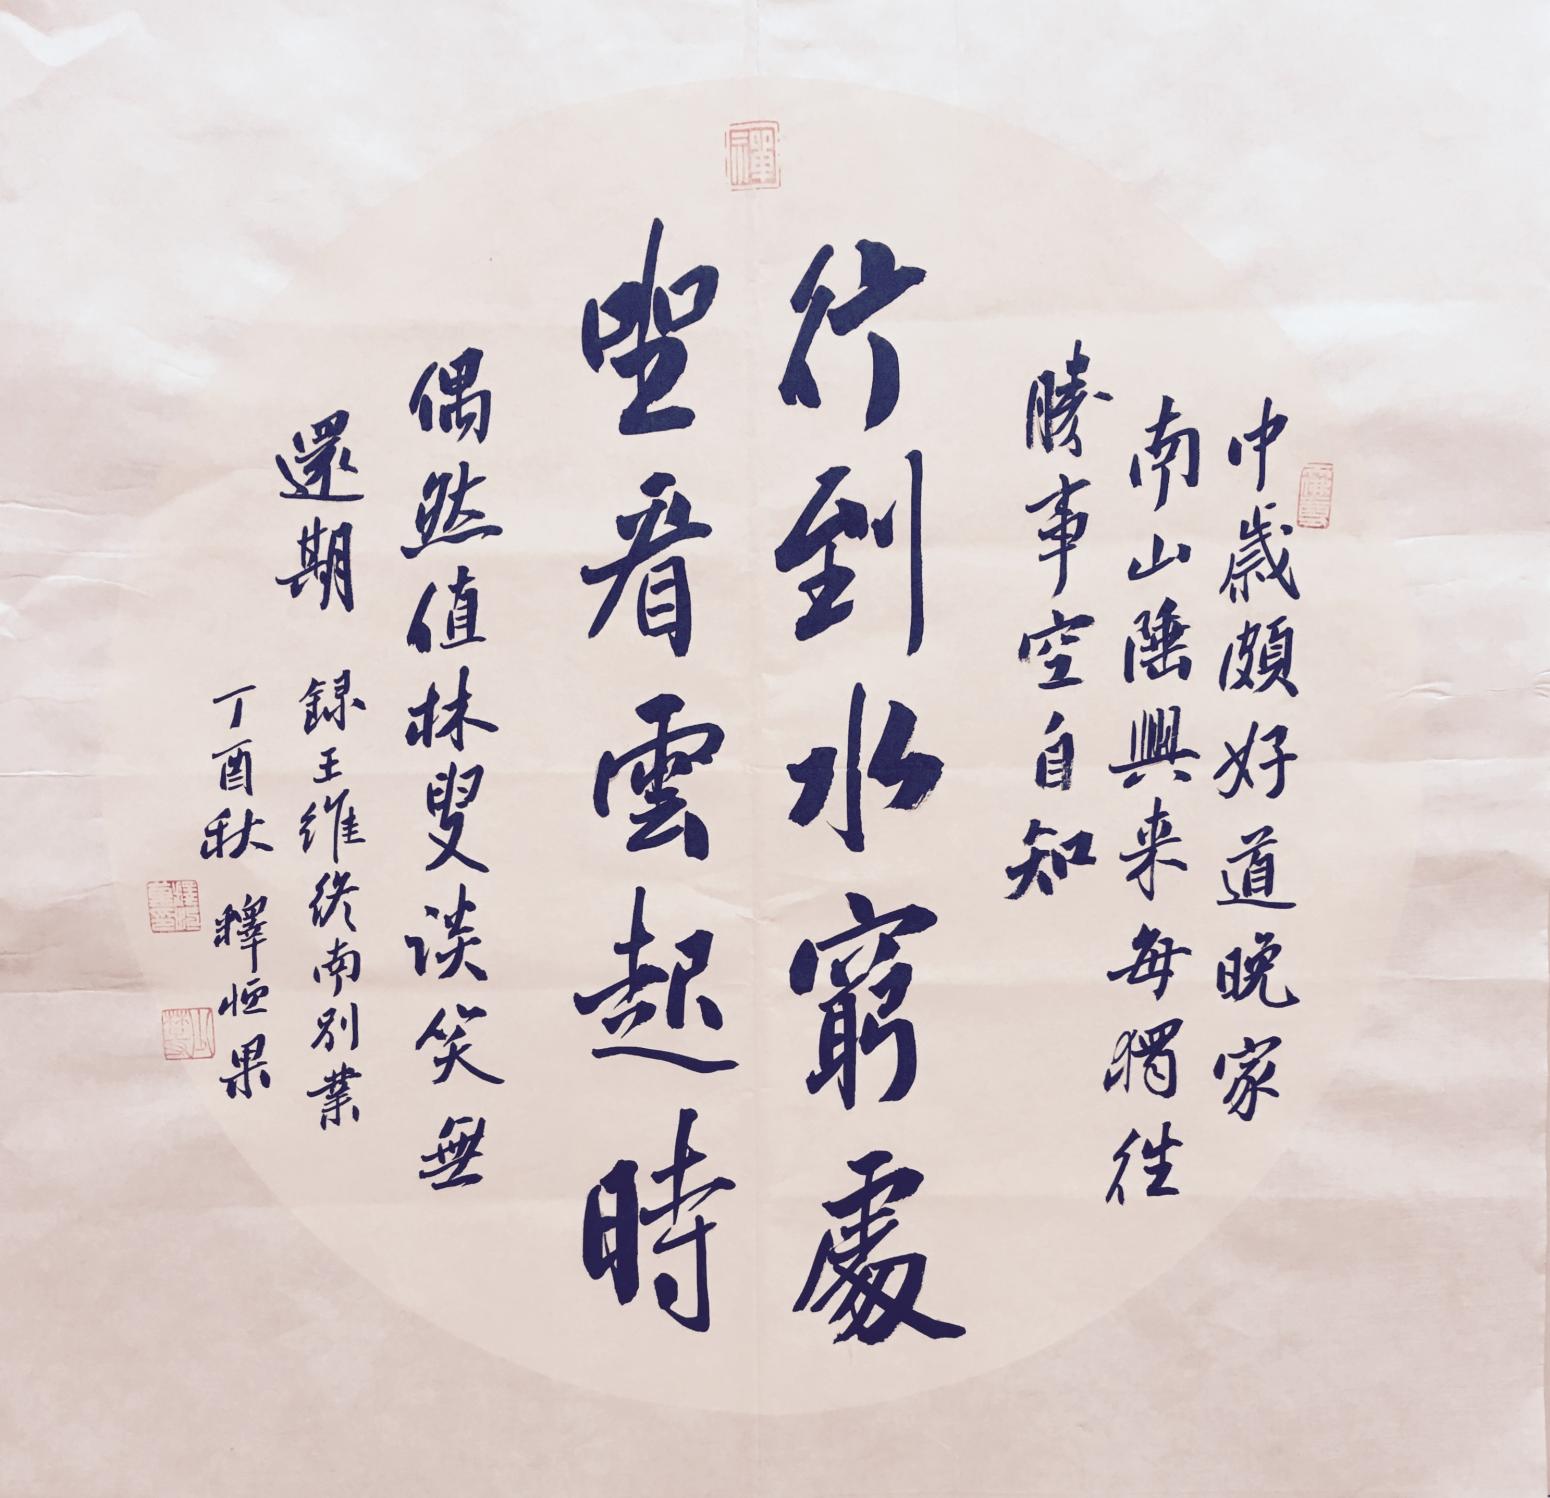 中歲頗好道晚家
南山陲興来每獨往
勝事空自知
行到水窮處
坐看雲起時
偶然值林叟談笑無
還期 録王維終南別業
丁酉秋 釋恒果
禪